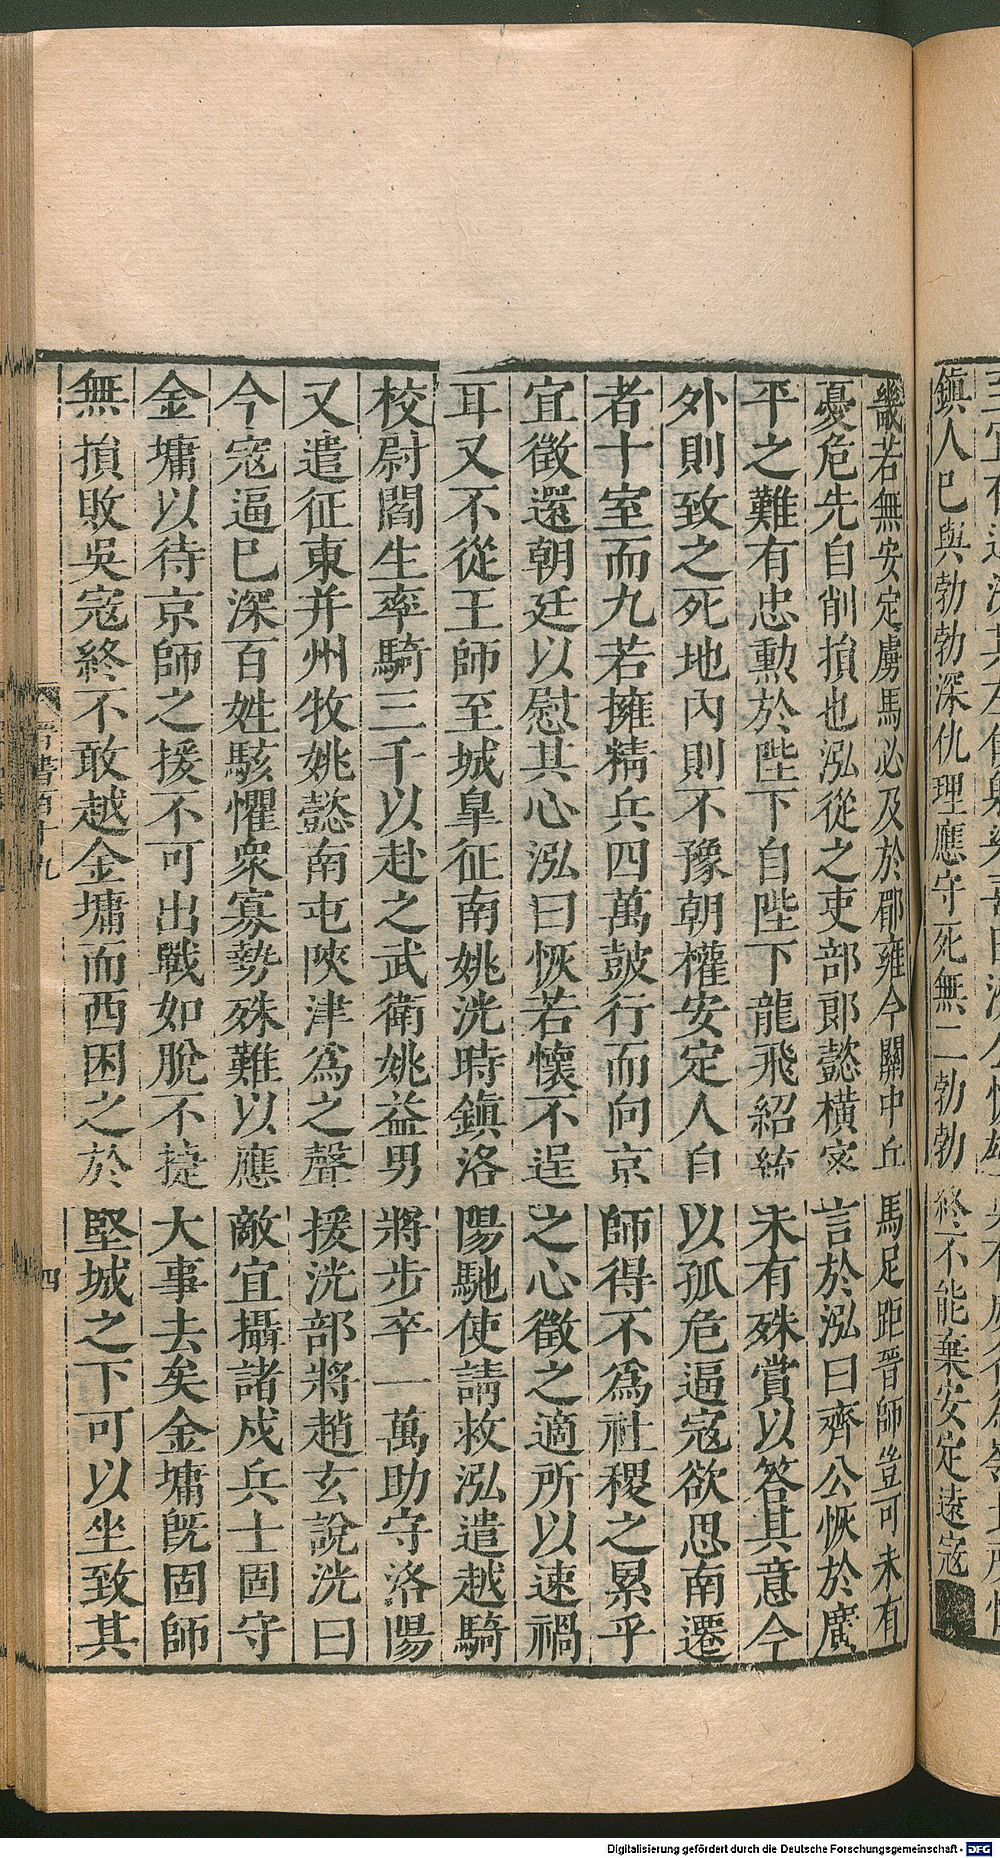 鎮人巳與勃勃深仇理應守死無二勃勃終不能棄安定遠寇
畿若無安定虜馬必及於郿雍今關中丘馬足距晉師豈可未有
憂危先自削損也泓從之吏部郎懿橫宻言於泓曰齊公恢於廣
平之難有忠勳於陛下自陛下龍飛紹統未有殊賞以荅其意今
外則致之死地內則不豫朝權安定人自以孤危逼寇欲思南遷
者十室而九若擁精兵四萬鼓行而向京師得不爲社稷之累乎
宜徵還朝廷以慰其心泓曰恢若懷不逞之心徵之適所以速禍
耳又不從王師至城皐征南姚洸時鎮洛陽馳使請救泓遣越騎
校尉閻生率騎三千以赴之武衛姚益男將步卒一萬助守洛陽
又遣征東并州牧姚懿南屯陝津爲之聲援洸部將趙玄說洸曰
今寇逼巳深百姓駭懼衆寡勢殊難以應敵宜攝諸戍兵士固守
金墉以待京師之援不可出戰如脫不捷大事去矣金墉旣固師
無損敗吳寇終不敢越金墉而西困之於堅城之下可以坐致其
晉書百十九
四
Digitalisierung gefördert durch die Deutsche Forschungsgemeinschaft - DFG